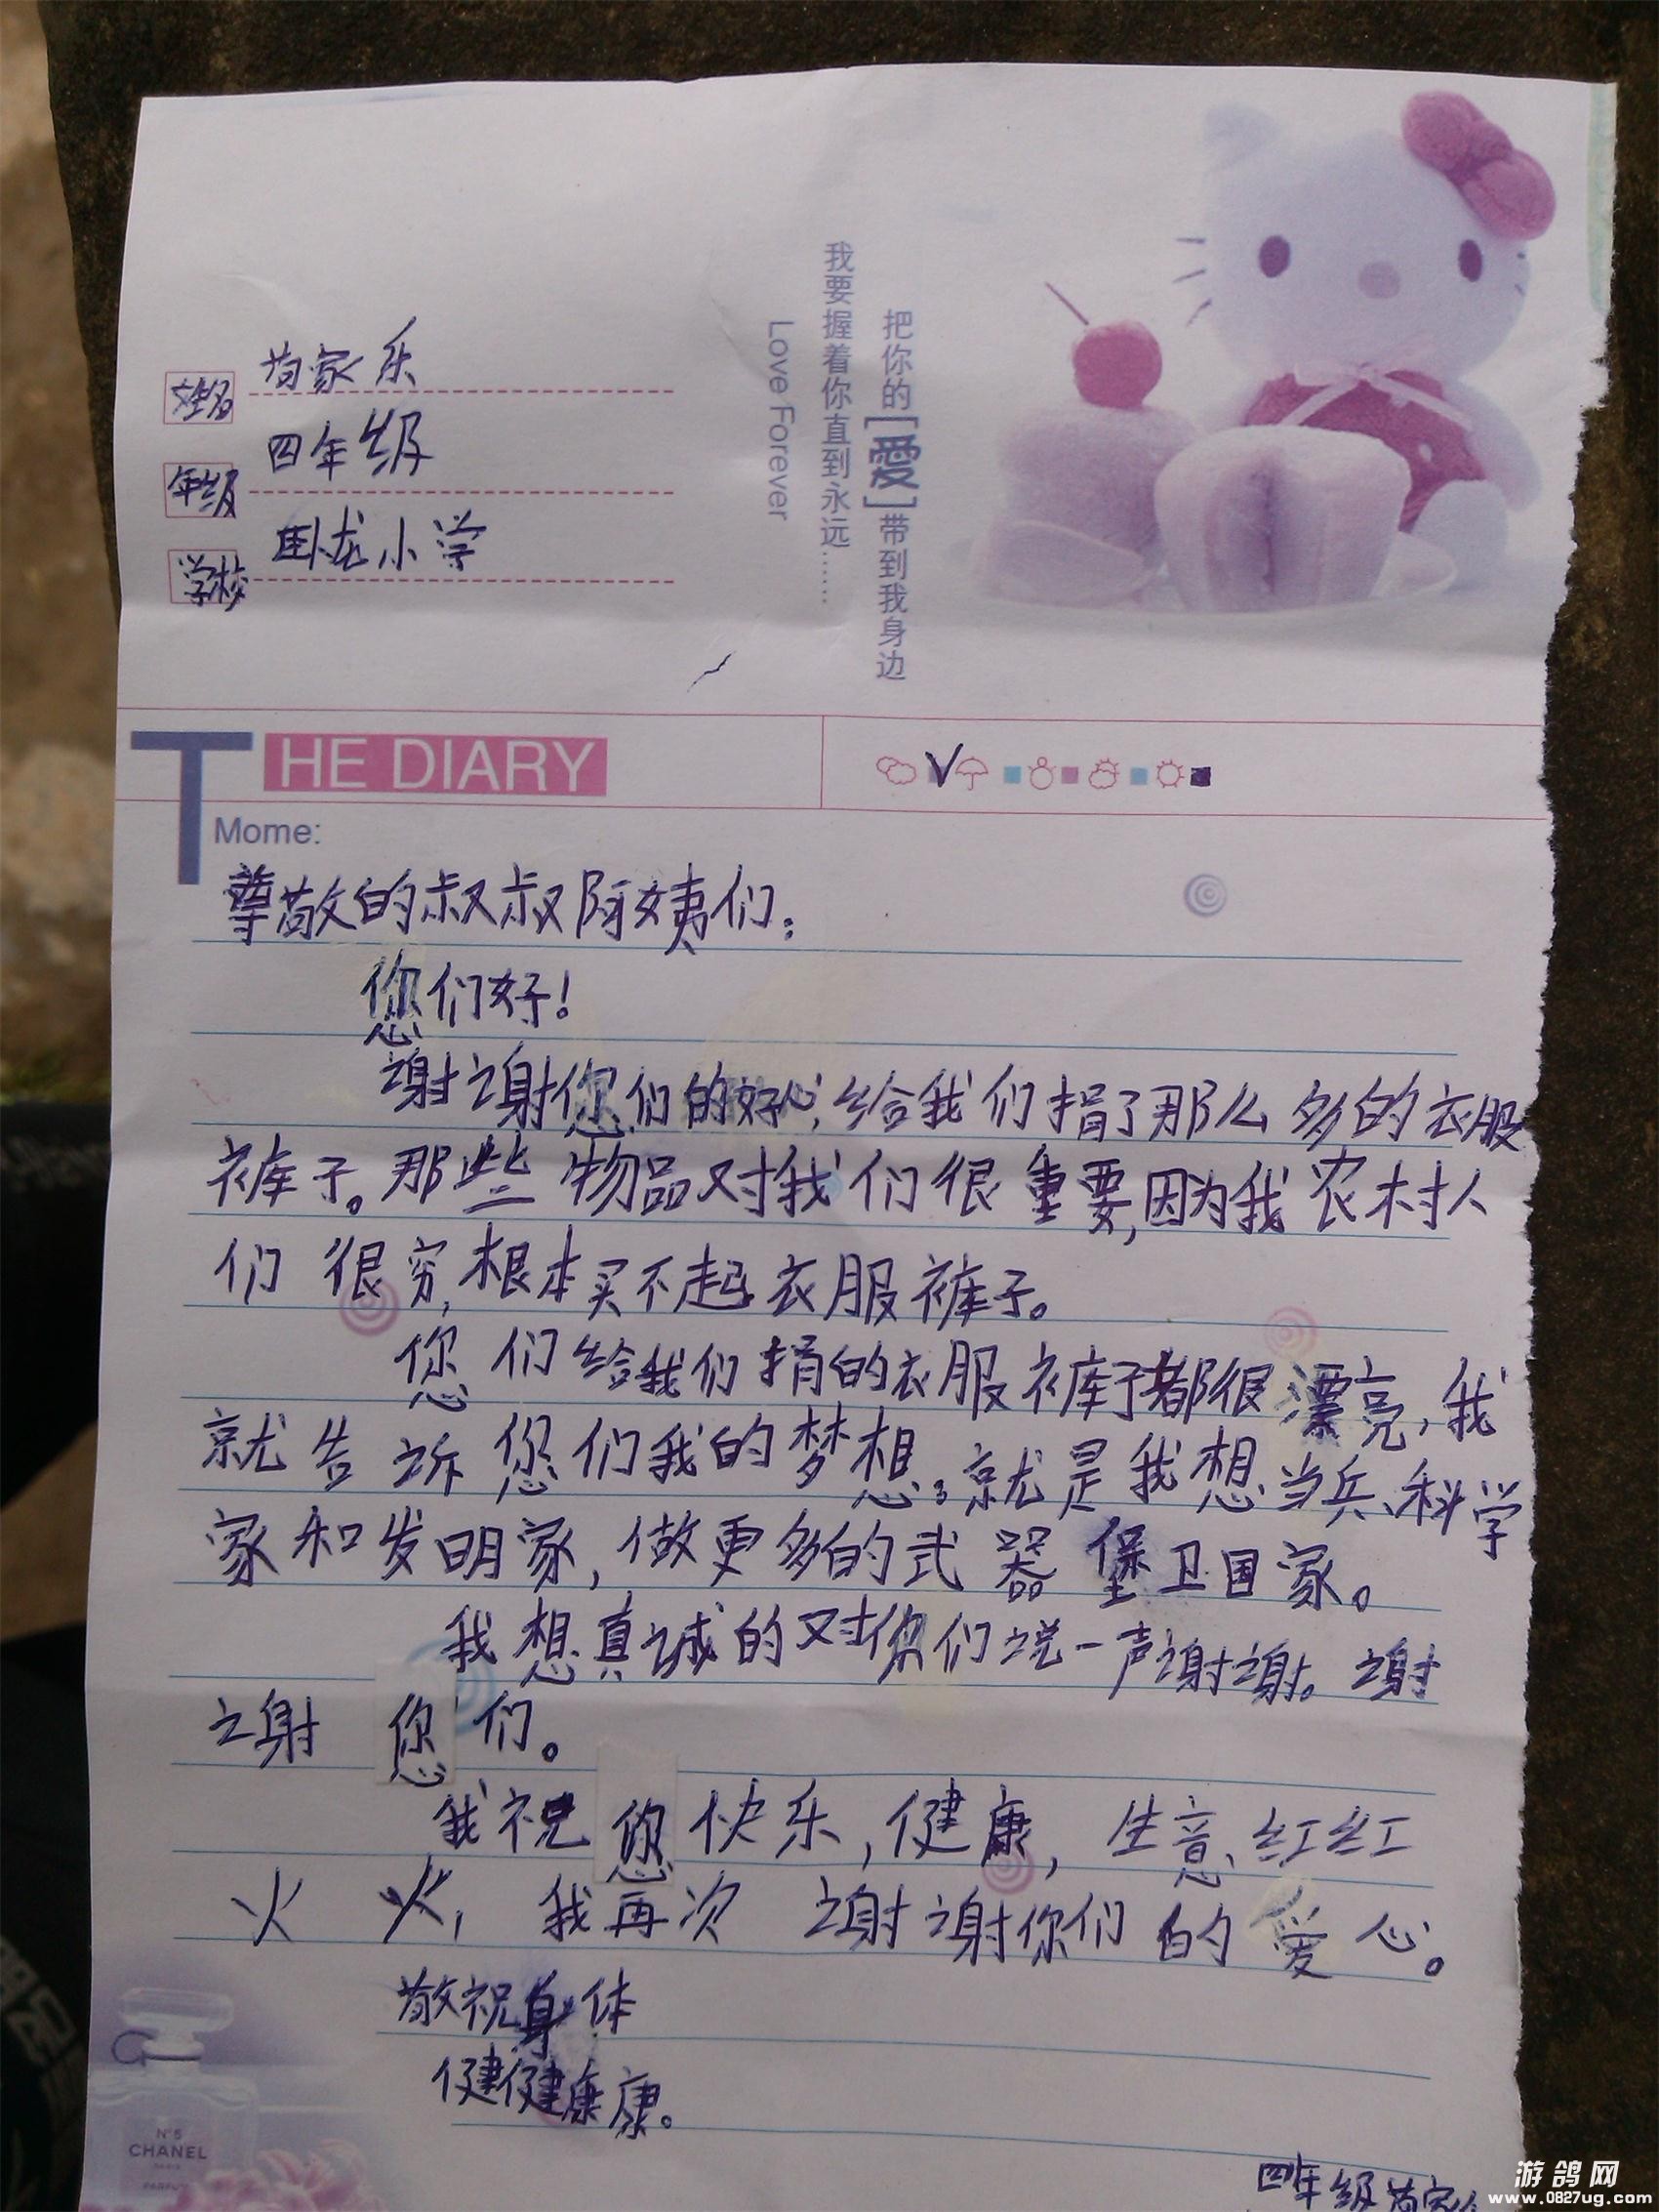 姓名 苟家乐
年级 四年级
学校 卧龙小学
把你的[愛]带到我身边
我要握着你直到永远……
Love Forever
THE DIARY
Mome:
尊敬的叔叔阿姨们:
您们好!
谢谢您们的好心,给我们捐了那么多的衣服
裤子。那些物品对我们很重要,因为我农村人
们很穷,根本买不起衣服裤子。
您们给我们捐的衣服裤子都很漂亮,我
就告诉您们我的梦想,就是我想当兵、科学
家和发明家,做更多的武器堡卫国家。
我想真诚的对你们说一声谢谢。谢
谢您们。
我祝您快乐,健康,生意红红
火火,我再次谢谢你们的爱心。
敬祝身体
健健康康。
四年级苟家
Nº5
CHANEL
PARIS
PARFUM
游鸽网
www.0827ug.com